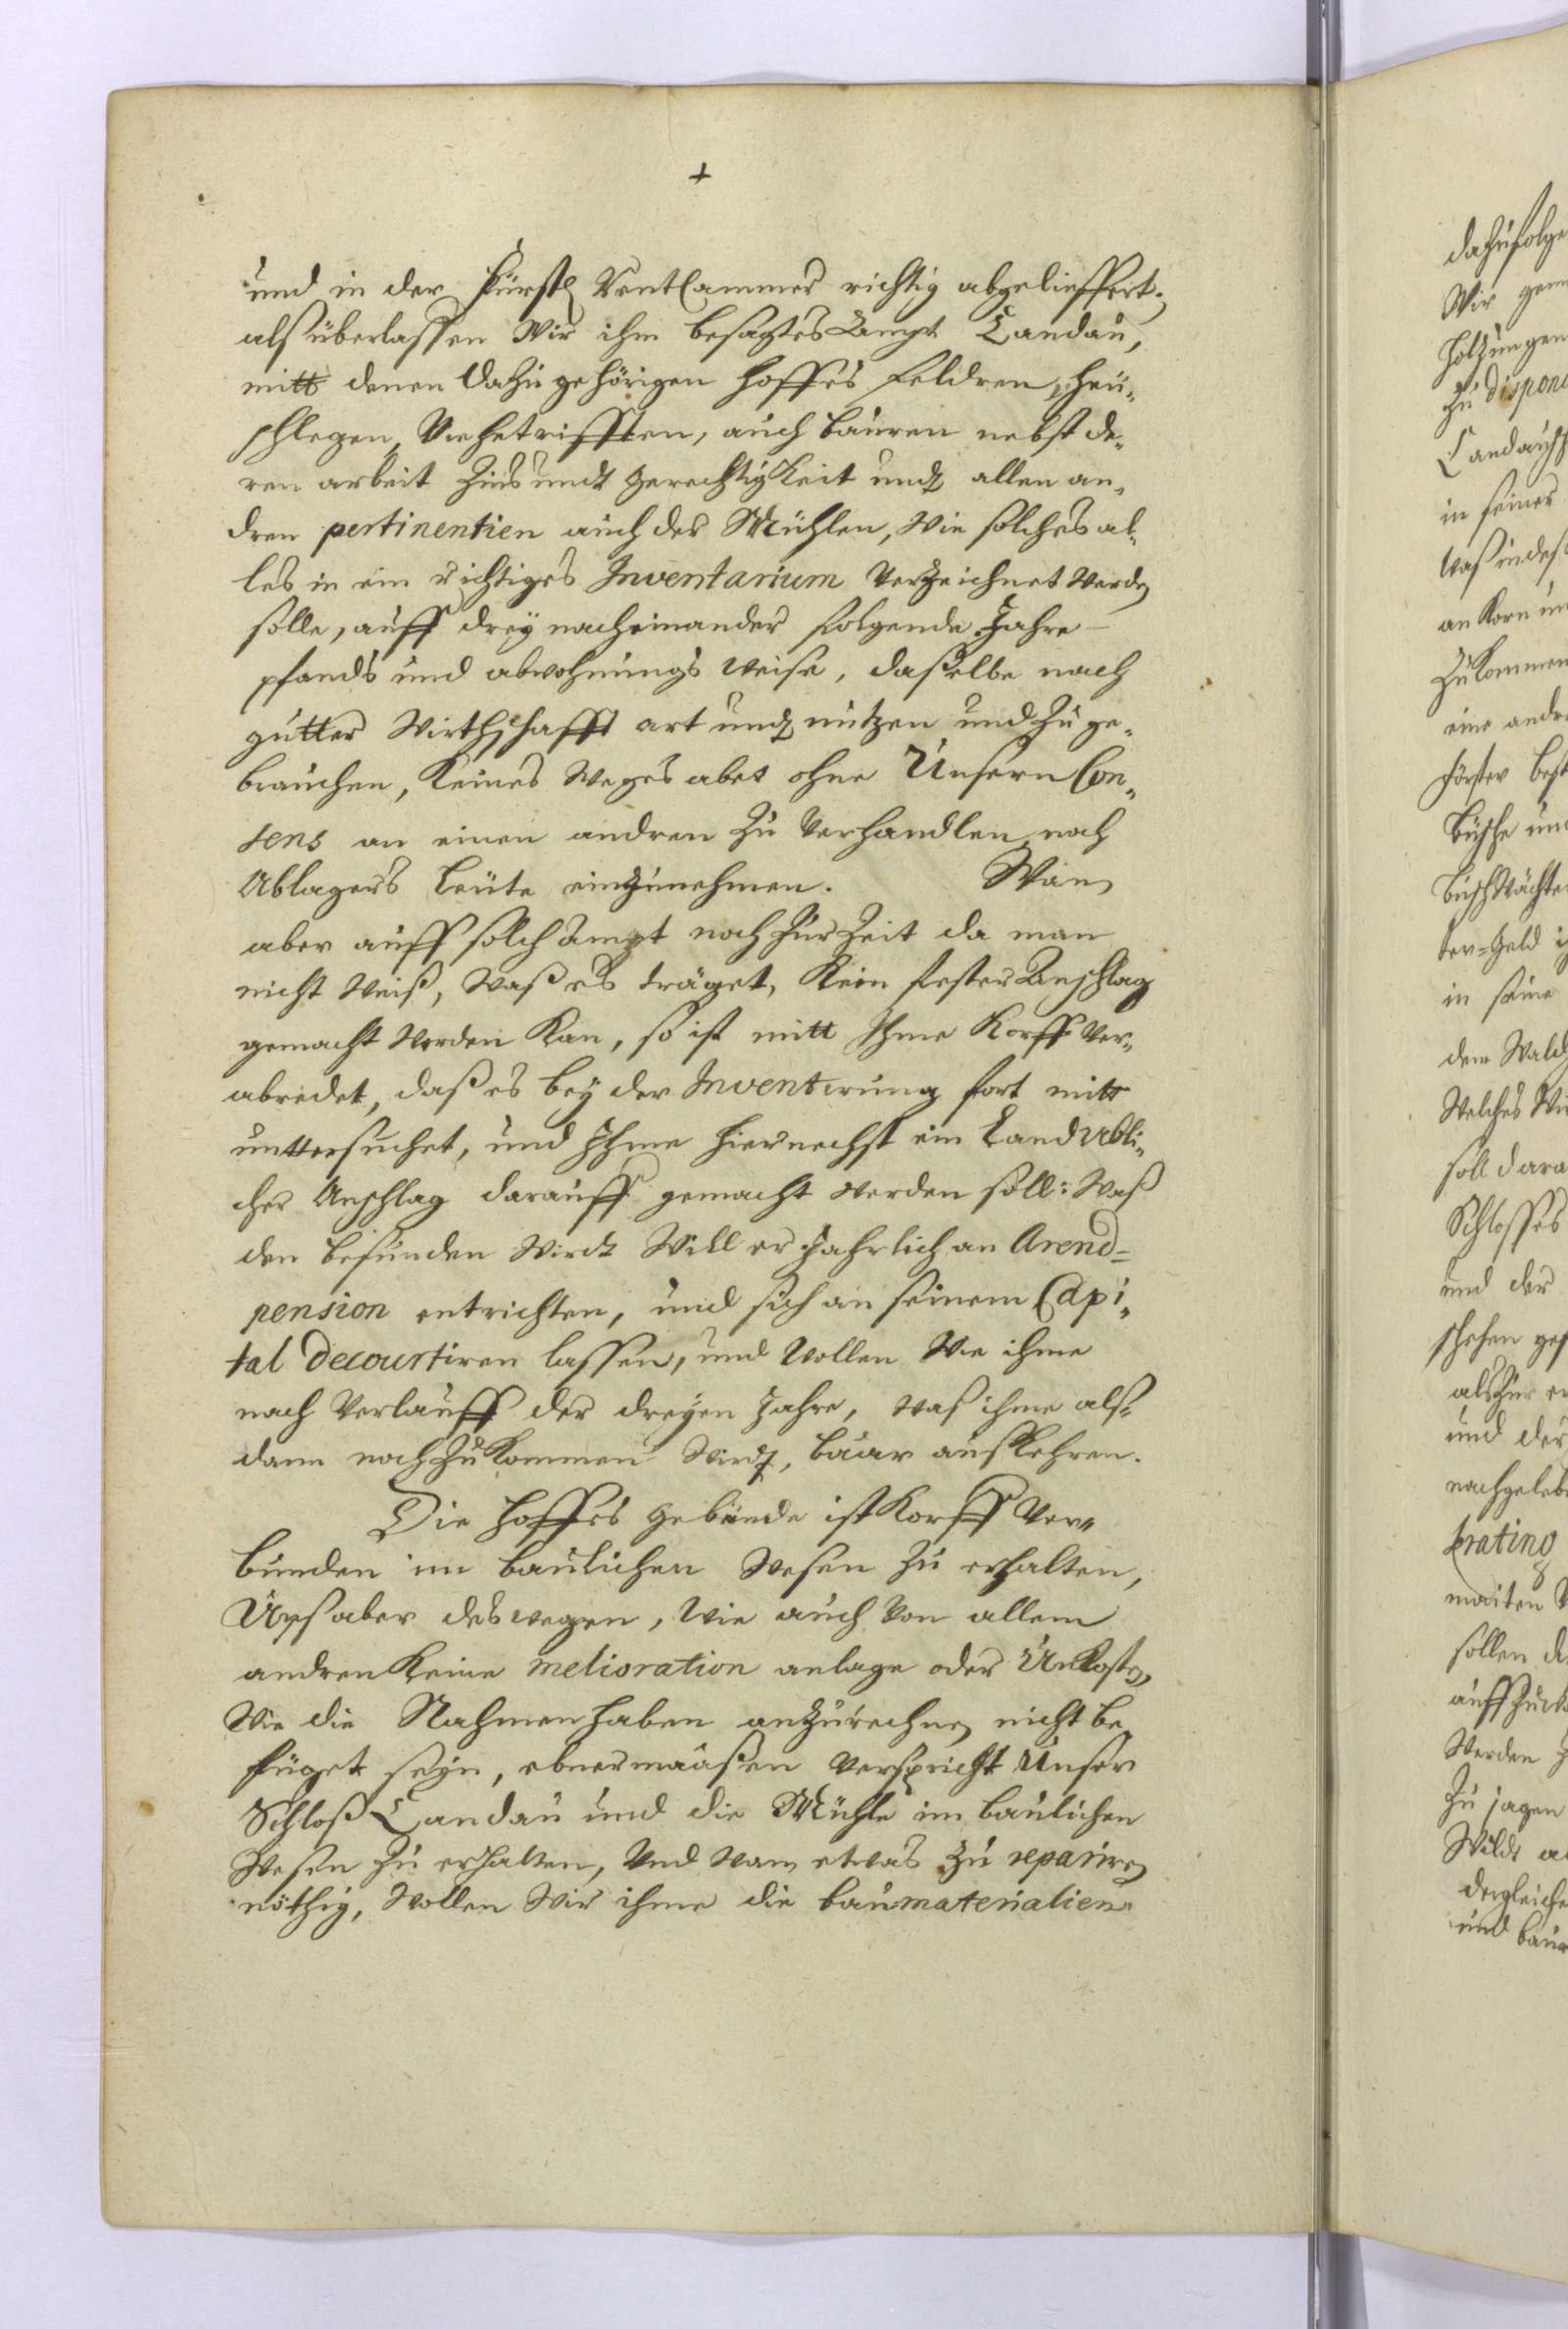 +
und in der Fürstl RentCammer richtig abgelieffert.
alß überlassen Wir ihm besagtes Ampt Candau,
mitt denen dazu gehörigen Hoffes Feldren, Heü„
schlegen, Viehetrifften, auch bauren nebst de„
ren arbeit Zins undt Gerechtigkeit undt allen an„
dren pertinentien auch der Mühlen, Wie solches al„
les in ein richtiges Inventarium Verzeichnet Werden
solle, auff dreÿ nacheinander folgende Jahre
pfands und abwohnungs weise, daßelbe nach
gutter Wirthschafft art undt nützen und zu ge„
brauchen, keines Weges aber ohne Unsern Con„
sens an einen andren zu Verhandlen, noch
Ablagers Leüte einzunehmen. Wan
aber auff solch ampt noch zur Zeit da man
nicht Weiß, Waß es träget, Kein fester Anschlag
gemacht Werden Kan, so ist mitt Ihme Korff Ver„
abredet, daß es beÿ der Inventirung fort mitt
untersuchet, und Ihme hiernechst ein Landübli„
cher Anschlag darauff gemacht werden soll: Waß
den befunden Wirdt Will er Jahrlich an Arend=
pension entrichten, und sich an seinem Capi„
tal decourtiren lassen, und Wollen Wir ihme
nach Verlauff der dreÿen Jahre, waß ihme alß„
dann noch zukommen Wirdt, baar auskehren.
Die Hoffes Gebäude ist Korff Ver„
bunden im baulichen Wesen zu erhalten,
Unß aber deswegen, Wie auch Von allem
andren Keine melioration anlage oder Unkosten,
Wie die Nahmen haben anzurechnen nicht be„
fuget seÿn, ebnermaaßen Verspricht Unser
Schloß Candau und die Mühle im baulichen
Wesen zu erhalten, Und Wann etwas zu repariren
nöthig, Wollen Wir ihme die baumaterialien
dazu folge
Wir
Holtzungen
zu
in seiner
an Korn
Zukommen
eine andre
Förster
Büsche und
Buschwächter
ter=Geld
in seine
dem Wald
Welches Wi
soll dara
Schlosses
und der
und der
nachgelebe
sollen
Werden
Zu jagen
Wildt
dergleiche
und baur